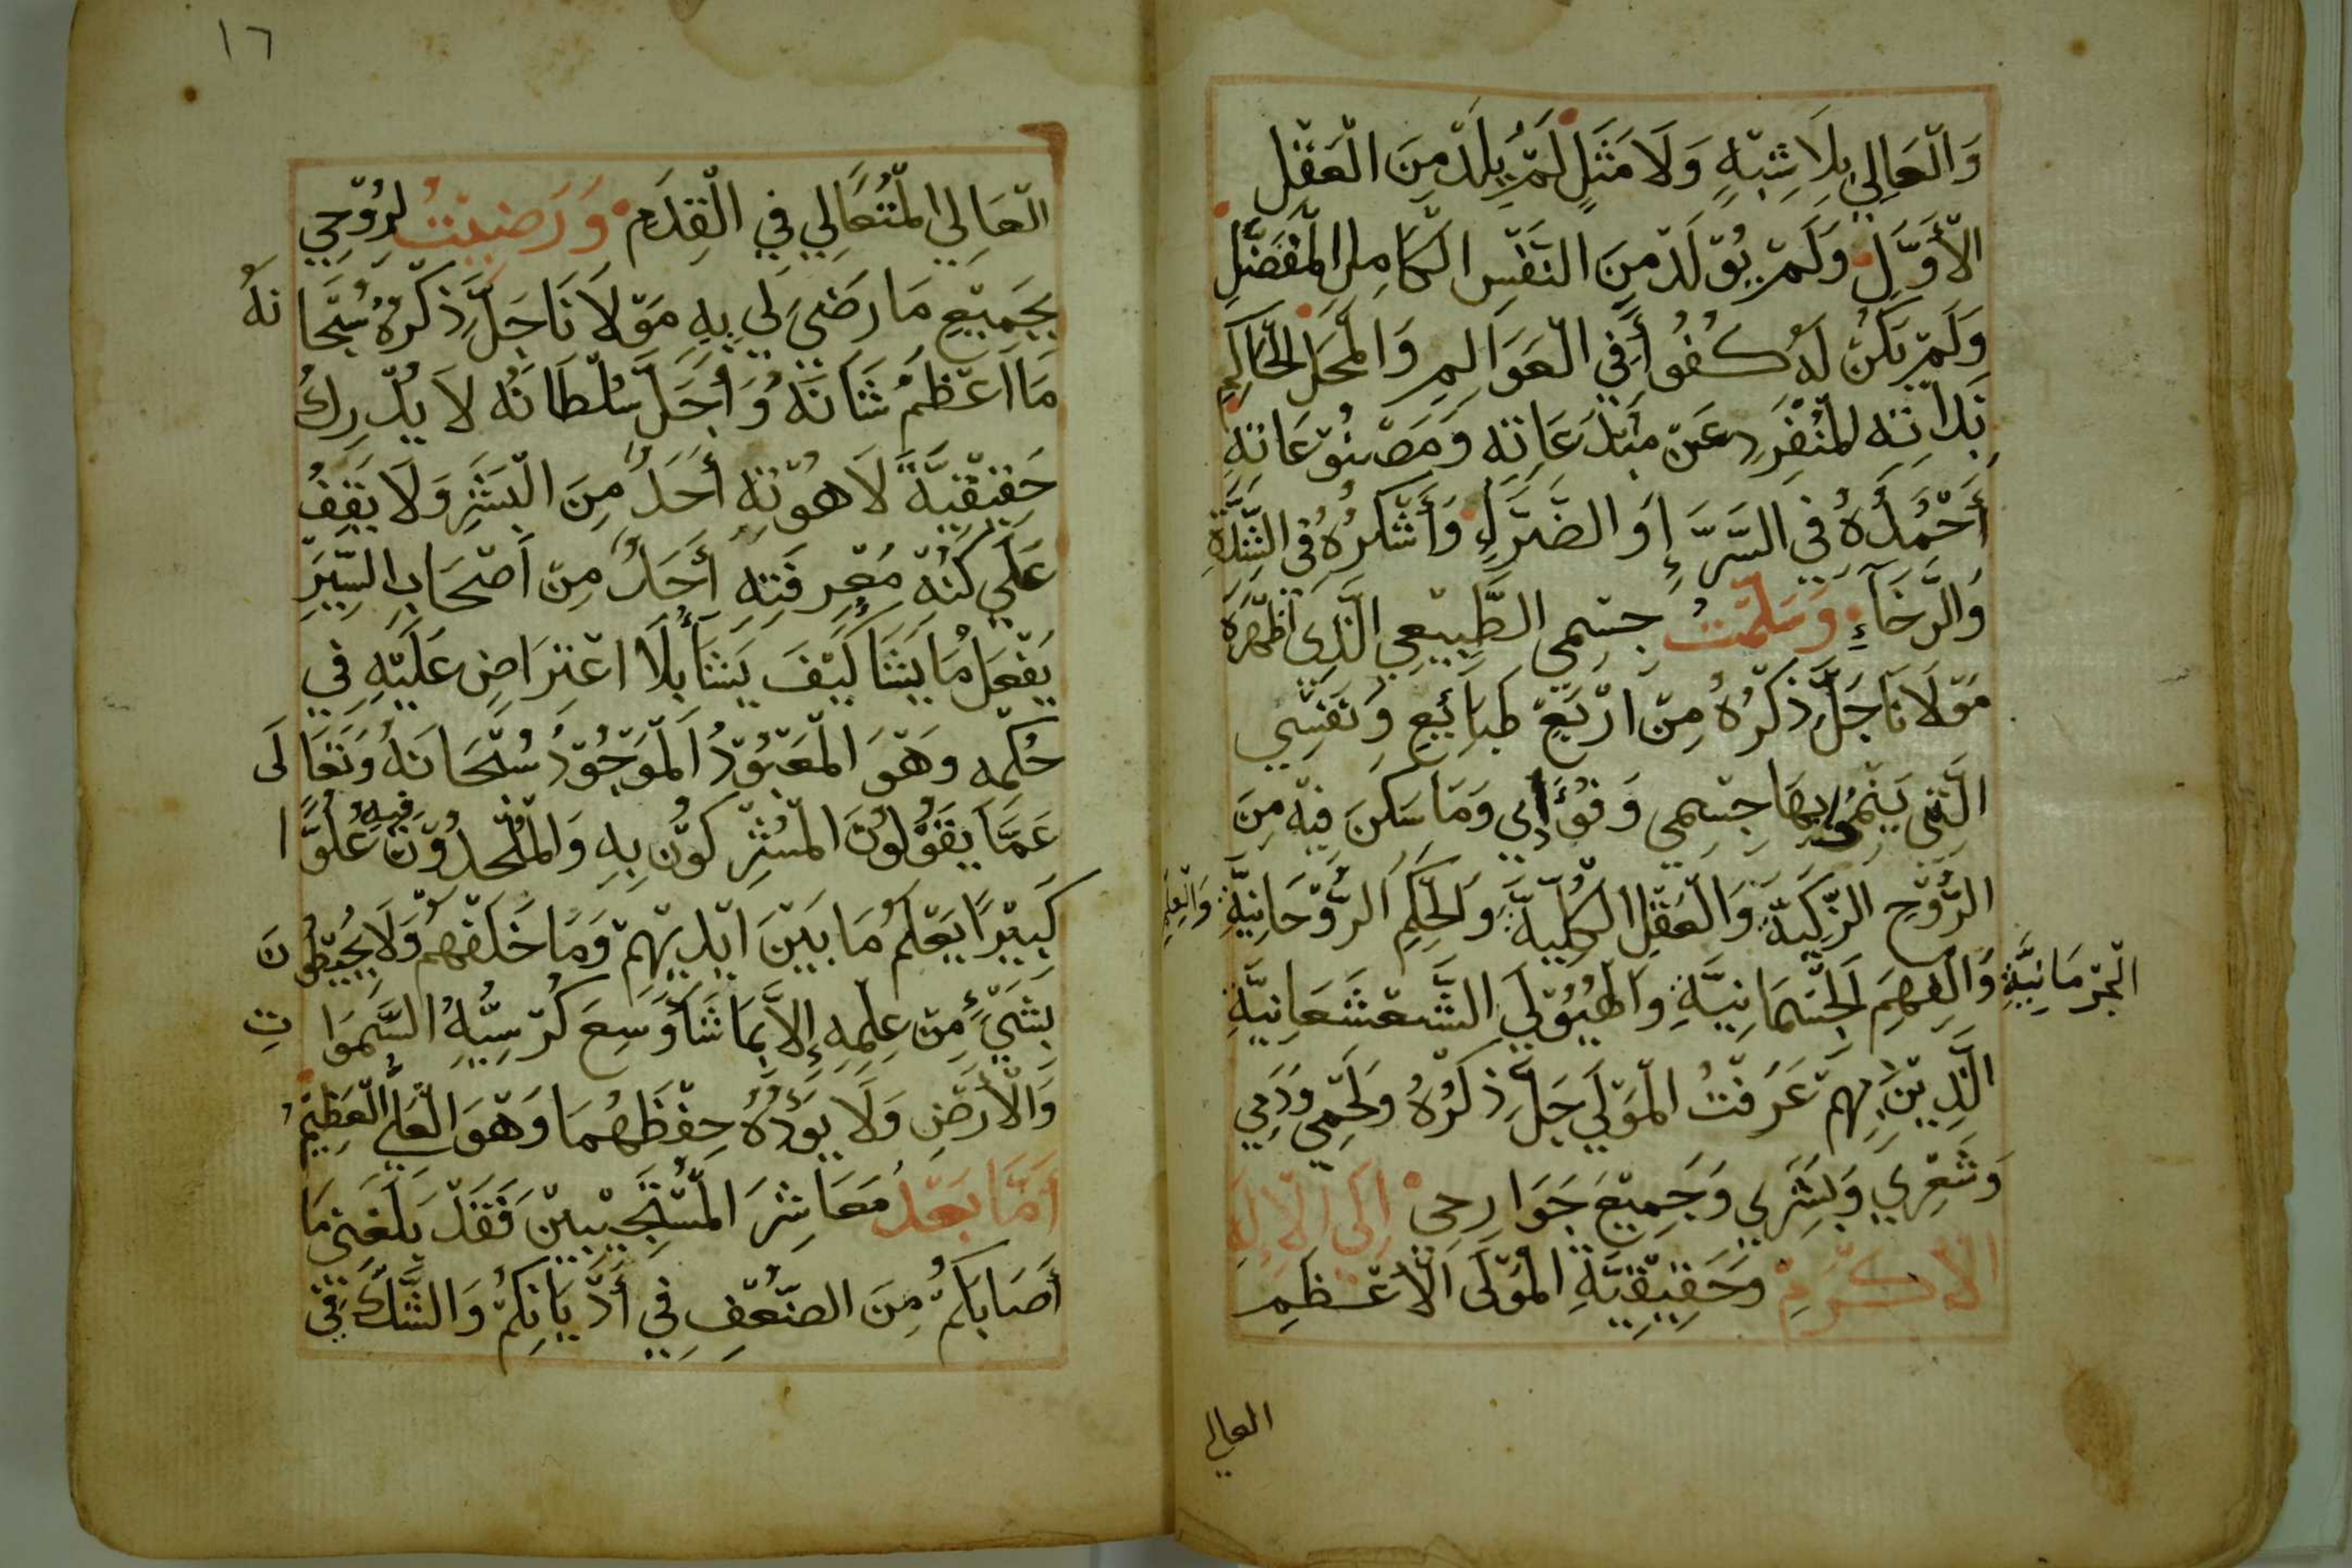 وَالْعَالِي بِلَا شِبْهٍ وَلَا مَثَلٍ لَمْ يَلِدْ مِنَ الْعَقْلِ
الْأَوَّلِ وَلَمْ يُوْلَدْ مِنَ النَّفْسِ الْكَامِلِ الْمُفَضَّلِ
وَلَمْ يَكُنْ لَهُ كُفُوأً فِي الْعَوَالِمِ وَالْمَحَلِ الْحَاكِمِ
بِذَاتِهِ الْمُنْفَرِدِ عَنْ مُبْدَعَاتِهِ وَمَصْنُوْعَاتِهِ
أَحْمَدُهُ فِي السَّرَّإِ وَالضَّرَّإِ وَأَشْكُرُهُ فِي الشِّدَّةِ
وَالرَّخَآءِ وَسَلَّمْتُ جِسْمِي الطَّبِيْعِي الَّذِي أَظْهَرَهُ
مَوْلَانَا جَلَّ ذِكْرُهُ مِنْ ارْبَعْ طَبَائِعِ وَنَفْسِي
الَّتِي يَنْمُوا بِهَا جِسْمِي وَقُوَّائِي وَمَا سَكَنَ فِيْهِ مِنَ
الرُّوْحِ الزَّكِيَّةِ وَالْعَقْلِ الْكُلِّيَّةِ وَالْحِكَمِ الرُّوْحَانِيَّةِ وَالْعِلْمِ
الْجِرْمَانِيَّةِ وَالْفَهِمَ الْجِسْمَانِيَّةِ وَالْهَيُوْلَي الشَّعْشَعَانِيَّةِ
الَّذِيْنَ بِهِمْ عَرَفْتُ الْمَوْلَي جَلَّ ذِكْرُهُ وَلَحْمِي وَدَمِي
وَشَعْرِي وَبَشَرِي وَجَمِيْعَ جَوَارِحِي إِلَى الْإِلَهِ
الْأَكْرَمِ وَحَقِيْقِيَّةِ الْمَوْلَى الْأَعْظَمِ
العالي
١٦
الْعَالِي الْمُتَعَالِي فِي الْقِدَمِ وَرَضِيْتُ لِرُوْحِي
بِجَمِيْعِ مَا رَضِيَ لِي بِهِ مَوْلَانَا جَلَّ ذِكْرُهُ سُبْحَانَهُ
مَا اَعْظَمَ شَانَهُ وَأَجَلَّ سُلْطَانَهُ لَا يُدْرِكُ
حَقِيْقِيَّةً لَاهُوْتِهِ أَحَدٌ مِنَ الْبَشَرِ وَلَا يَقِفُ
عَلَي كُنْهِ مَعْرِفَتِهِ أَحَدٌ مِنْ أَصْحَابِ السِّيَرِ
يَفْعَلُ مَا يَشَا كَيْفَ يَشَأ بِلَا اعْتِرَاضٍ عَلَيْهِ فِي
حُكْمِهِ وَهْوَ الْمَعْبُوْدُ الْمَوْجُوْدُ سُبْحَانَهُ وَتَعَالَى
عَمَّا يَقَوْلُوْنَ الْمُشْرِكُوْنَ بِهِ وَالْمُلْحِدُوْنَ فيه عُلُوًّا
كَبِيْرًا يَعْلَمُ مَا بَيْنَ ايْدِيْهِمْ وَمَا خَلْفَهُمْ وَلَا يُحِيْطُوْنَ
بِشَيْءٍ مِنْ عِلْمِهِ إِلَّا بِمَا شَأ وَسِعَ كُرْسِيُّهُ السَّمَوَاتِ
وَالْأَرْضِ وَلَا يَؤُدُهُ حِفْظَهُمَا وَهْوَ الْعَلِيُّ الْعَظِيْمُ
أَمَّا بَعْدُ مَعَاشِرَ الْمُسْتَجِيْبِيْنَ فَقَدْ بَلَغَنِي مَا
أَصَابَكُمْ مِنَ الضَّعْفِ فِي أَدْيَانِكُمْ وَالشَّكِّ فِي